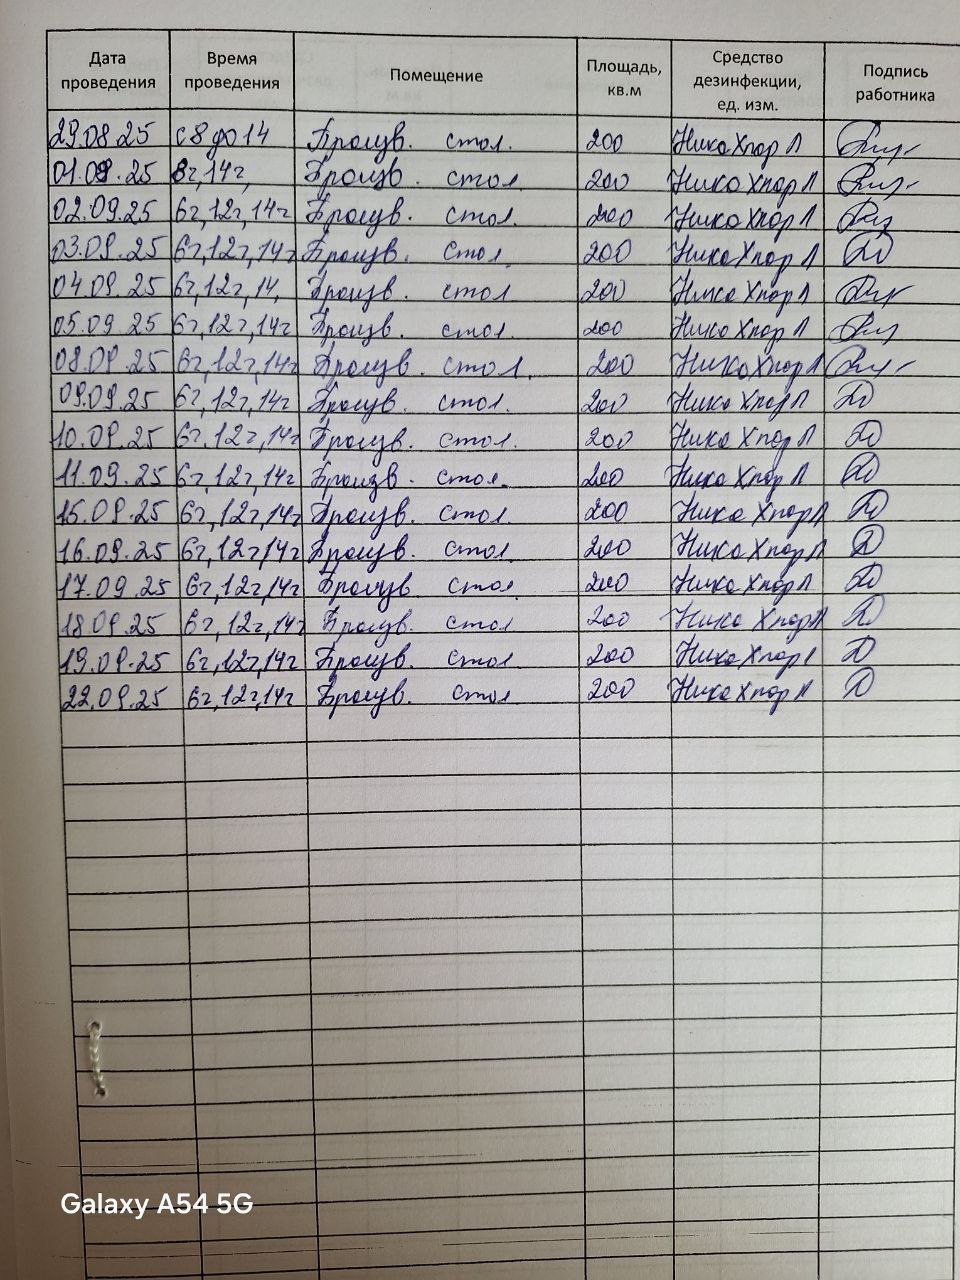 Дата проведения Время проведения Помещение Площадь, кв.м Средство дезинфекции, ед. изм. Подпись работника
29.08 25 с 8 до 14 Произв. стол. 200 НикаХлор Л
01.09.25 8ч,14ч, Произв. стол 200 Ника Хлор Л
02.09.25 6ч,12ч,14ч Произв. стол. 200 Ника Хлор Л
03.09.25 6ч,12ч,14ч Произв. стол 200 Ника Хлор Л
04.09.25 6ч,12ч,14. Произв. стол 200 Ника Хлор Л
05.09.25 6ч,12ч,14ч Произв. стол. 200 Ника Хлор Л
08.09.25 6ч,12ч,14ч Произв. стол. 200 НикаХлор Л
09.09.25 6ч,12ч,14ч Произв. стол. 200 Ника Хлор Л
10.09.25 6ч,12ч,14ч Произв. стол. 200 Ника Хлор Л
11.09.25 6ч,12ч,14ч Произв. стол. 200 Ника Хлор Л
15.09.25 6ч,12ч,14ч Произв. стол. 200 Ника Хлор Л
16.09.25 6ч,12ч,14ч Произв. стол 200 Ника Хлор Л
17.09.25 6ч,12ч,14ч Произв. стол 200 Ника Хлор Л
18.09.25 6ч,12ч,14ч Произв. стол 200 Ника Хлор Л
19.09.25 6ч,12ч,14ч Произв. стол. 200 Ника Хлор Л
22.09.25 6ч,12ч,14ч Произв. стол 200 Ника Хлор Л
Galaxy A54 5G